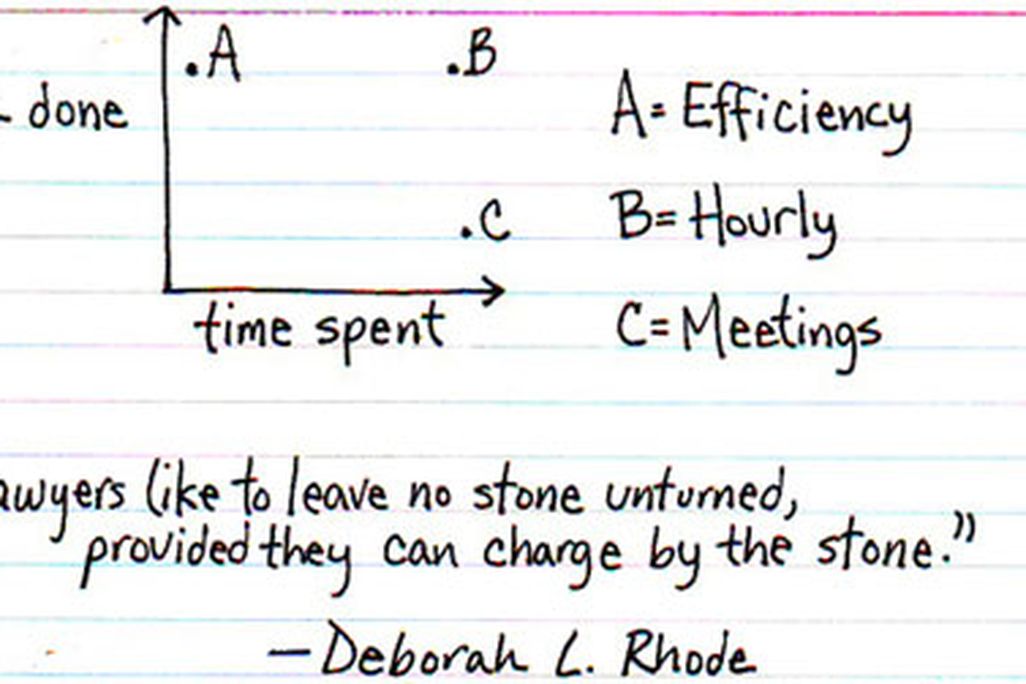 .A
.B
done
A= Efficiency
B= Hourly
.C
time spent
C= Meetings
like to leave no stone unturned,
provided they can charge by the stone.”
— Deborah L. Rhode